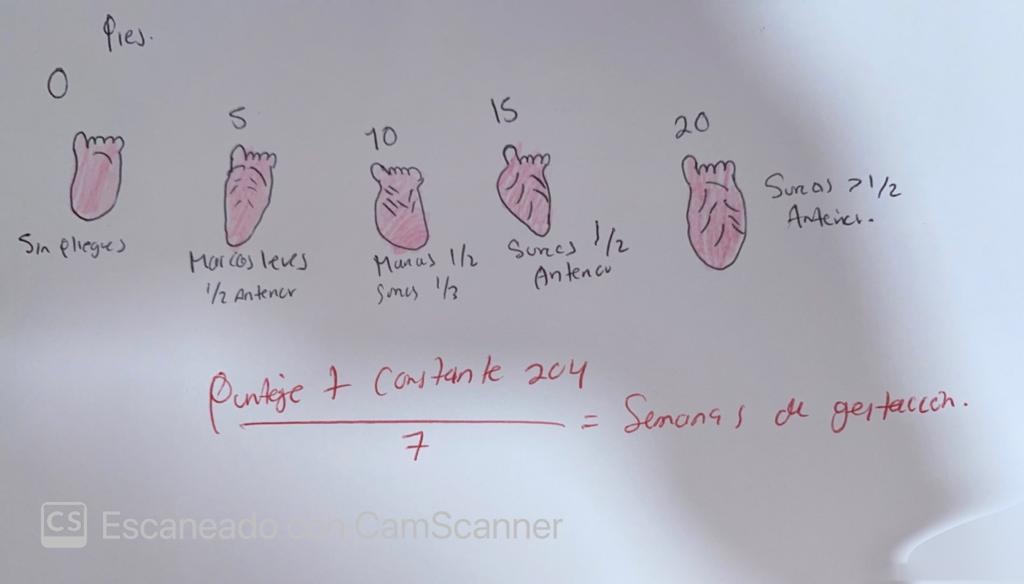 Pies.
0
5
10
15
20
Sin pliegues
Marcas leves
1/2 Anterior
Marcas 1/2
Surcos 1/3
Surcos 1/2
Anterior
Surcos > 1/2
Anterior.
Puntaje + Constante 204
7
= Semanas de gestación.
CS Escaneado con CamScanner